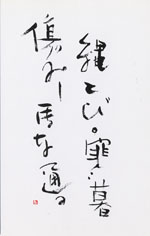 縄とびの寒暮
傷みし馬車通る